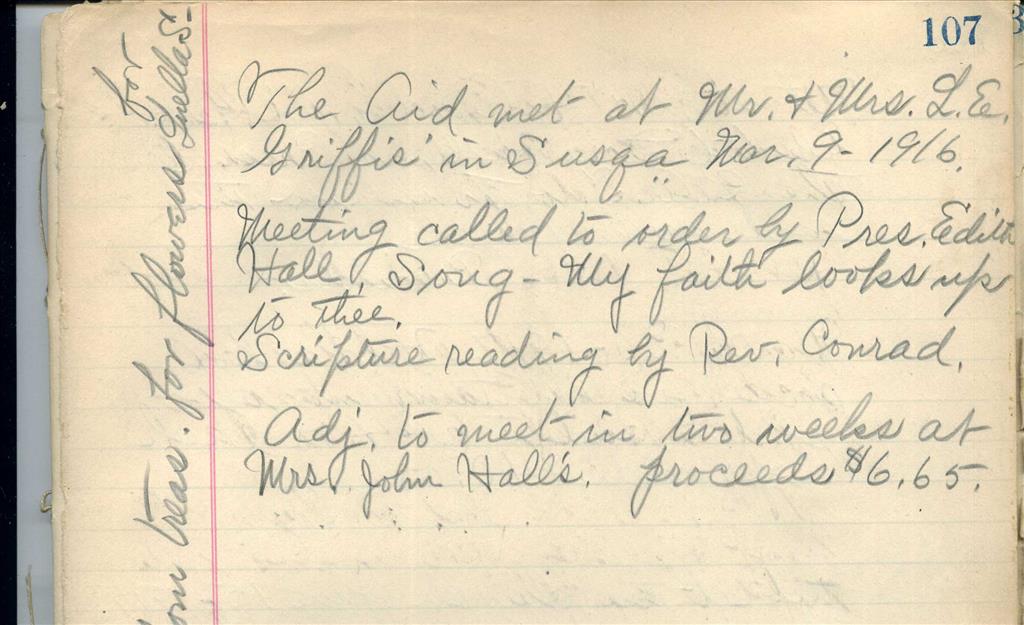 107
The Aid met at Mr. & Mrs. L. E.
Griffis' in Susqa Mar. 9 - 1916.
Meeting called to order by Pres. Edith
Hall. Song - My faith looks up
to thee.
Scripture reading by Rev. Conrad.
Adj. to meet in two weeks at
Mrs. John Hall's. proceeds $6.65.
treas. for flowers for
Luella S-